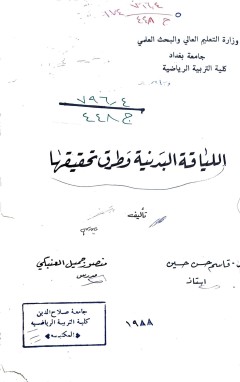 ٧٩٦٫٤
ح ٤٤٨
وزارة التعليم العالي والبحث العلمي
جامعة بغداد
كلية التربية الرياضية
٧٩٦٫٤
ج ٤٤٨
اللياقة البدنية وطرق تحقيقها
تأليف
د. قاسم حسن حسين
منصور جميل العنبكي
استاذ
مدرس
١٩٨٨
جامعة صلاح الدين
كلية التربية الرياضية
المكتبة